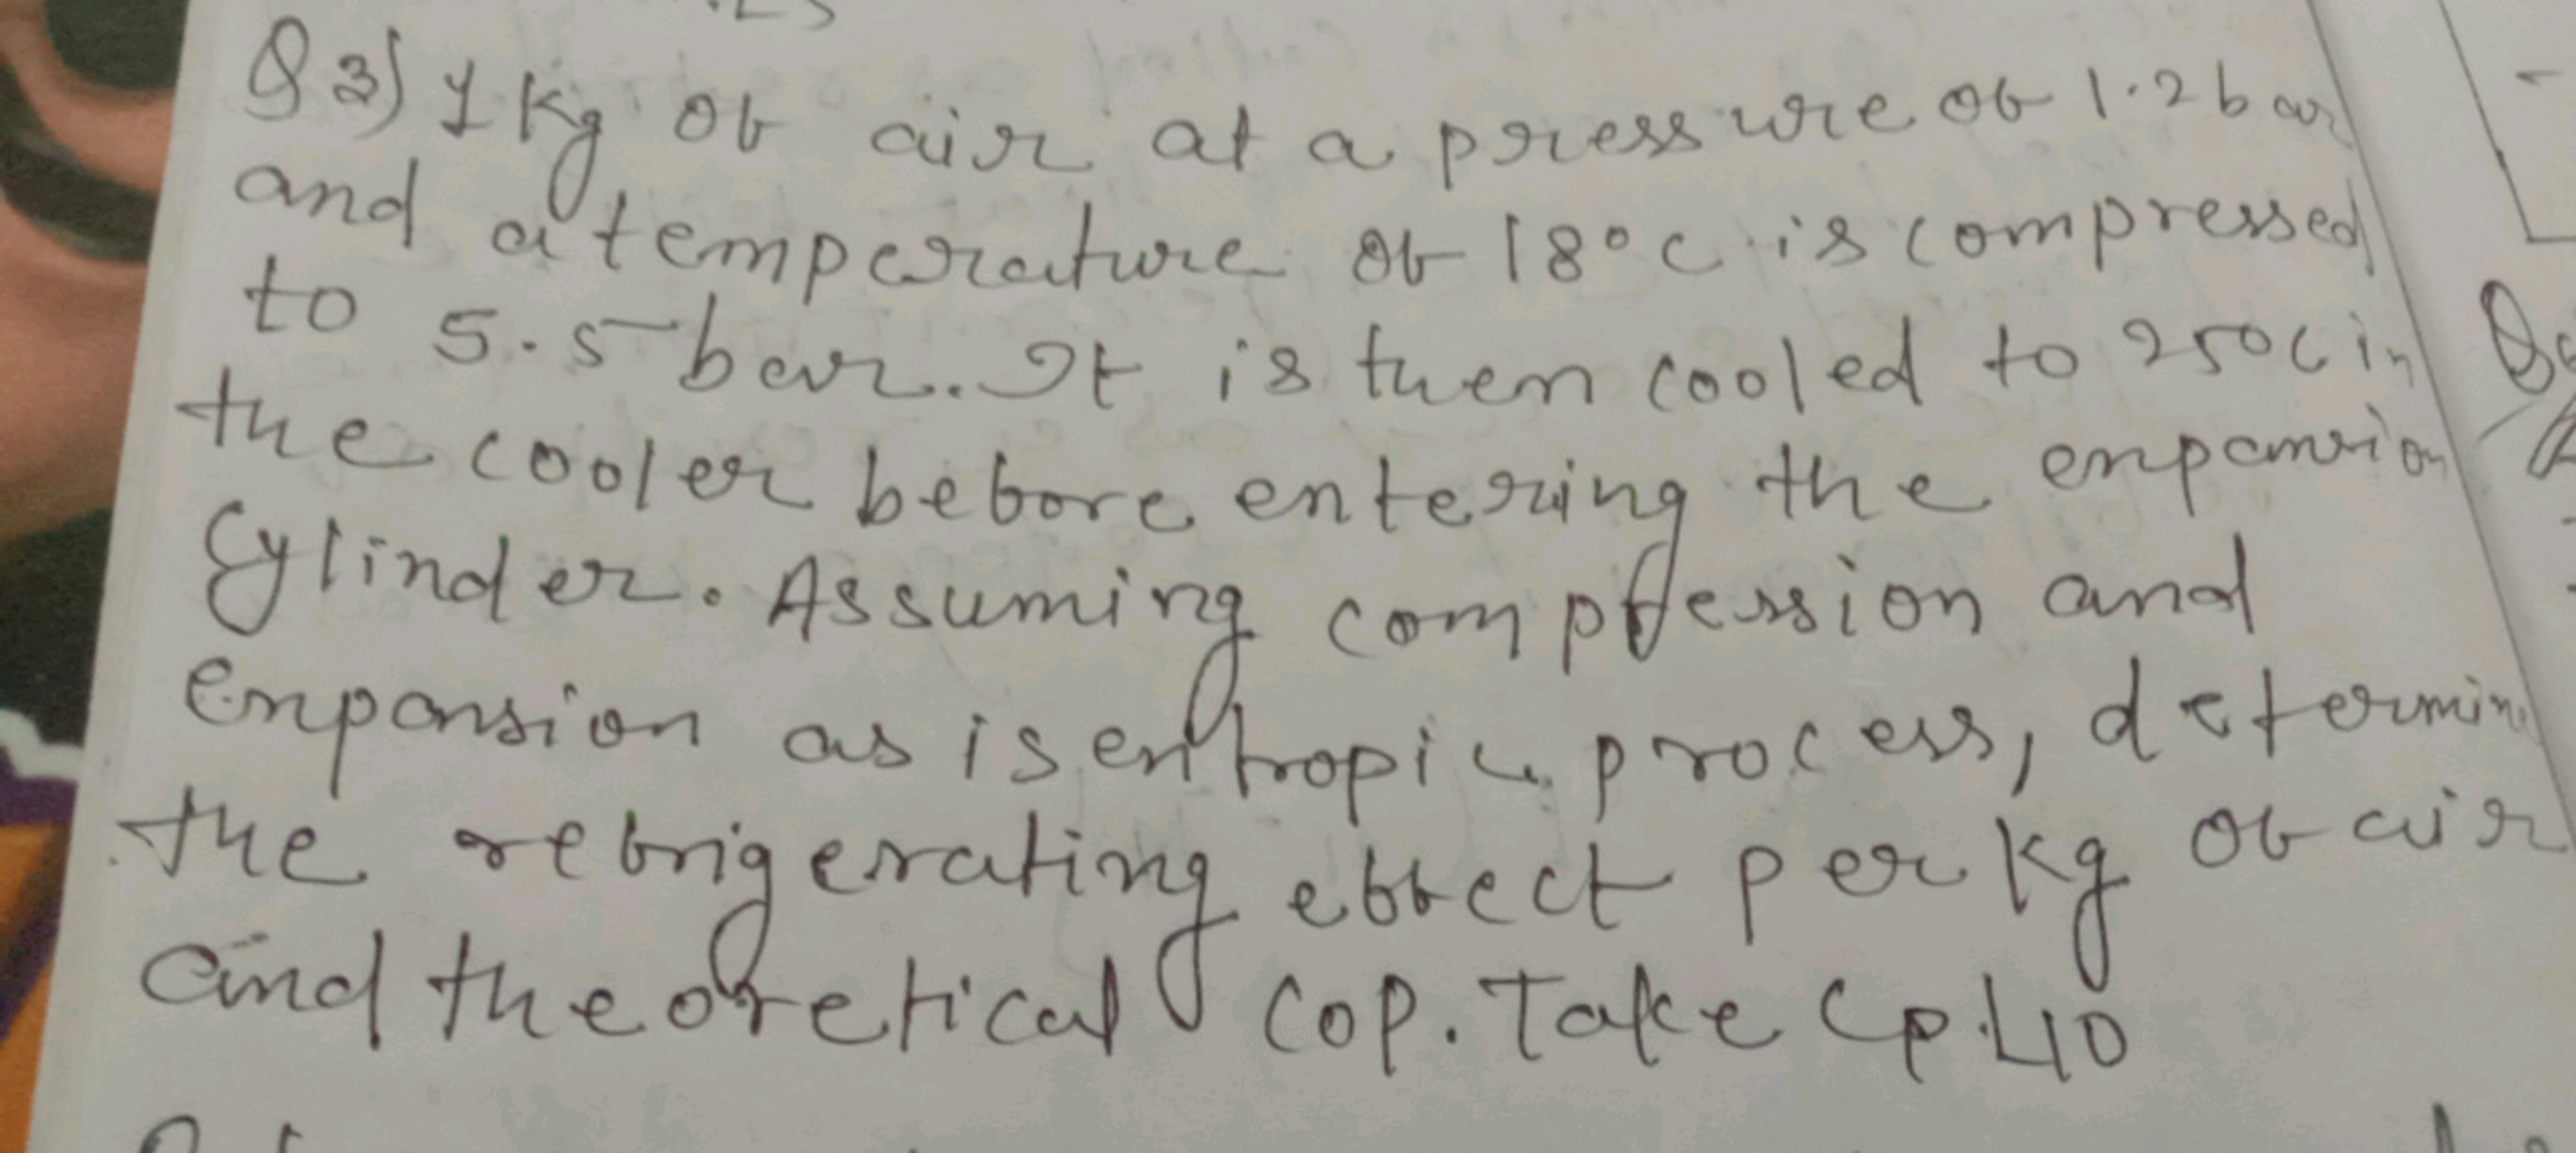 Q3) 1 Kg of air at a pressure of 1.2 bar
and a temperature of 18°C is compressed
to 5.5 bar. It is then cooled to 250C in
the cooler before entering the expansion
Cylinder. Assuming compression and
expansion as isentropic process, determin
the refrigerating effect per kg of air
and theoretical COP. Take Cp